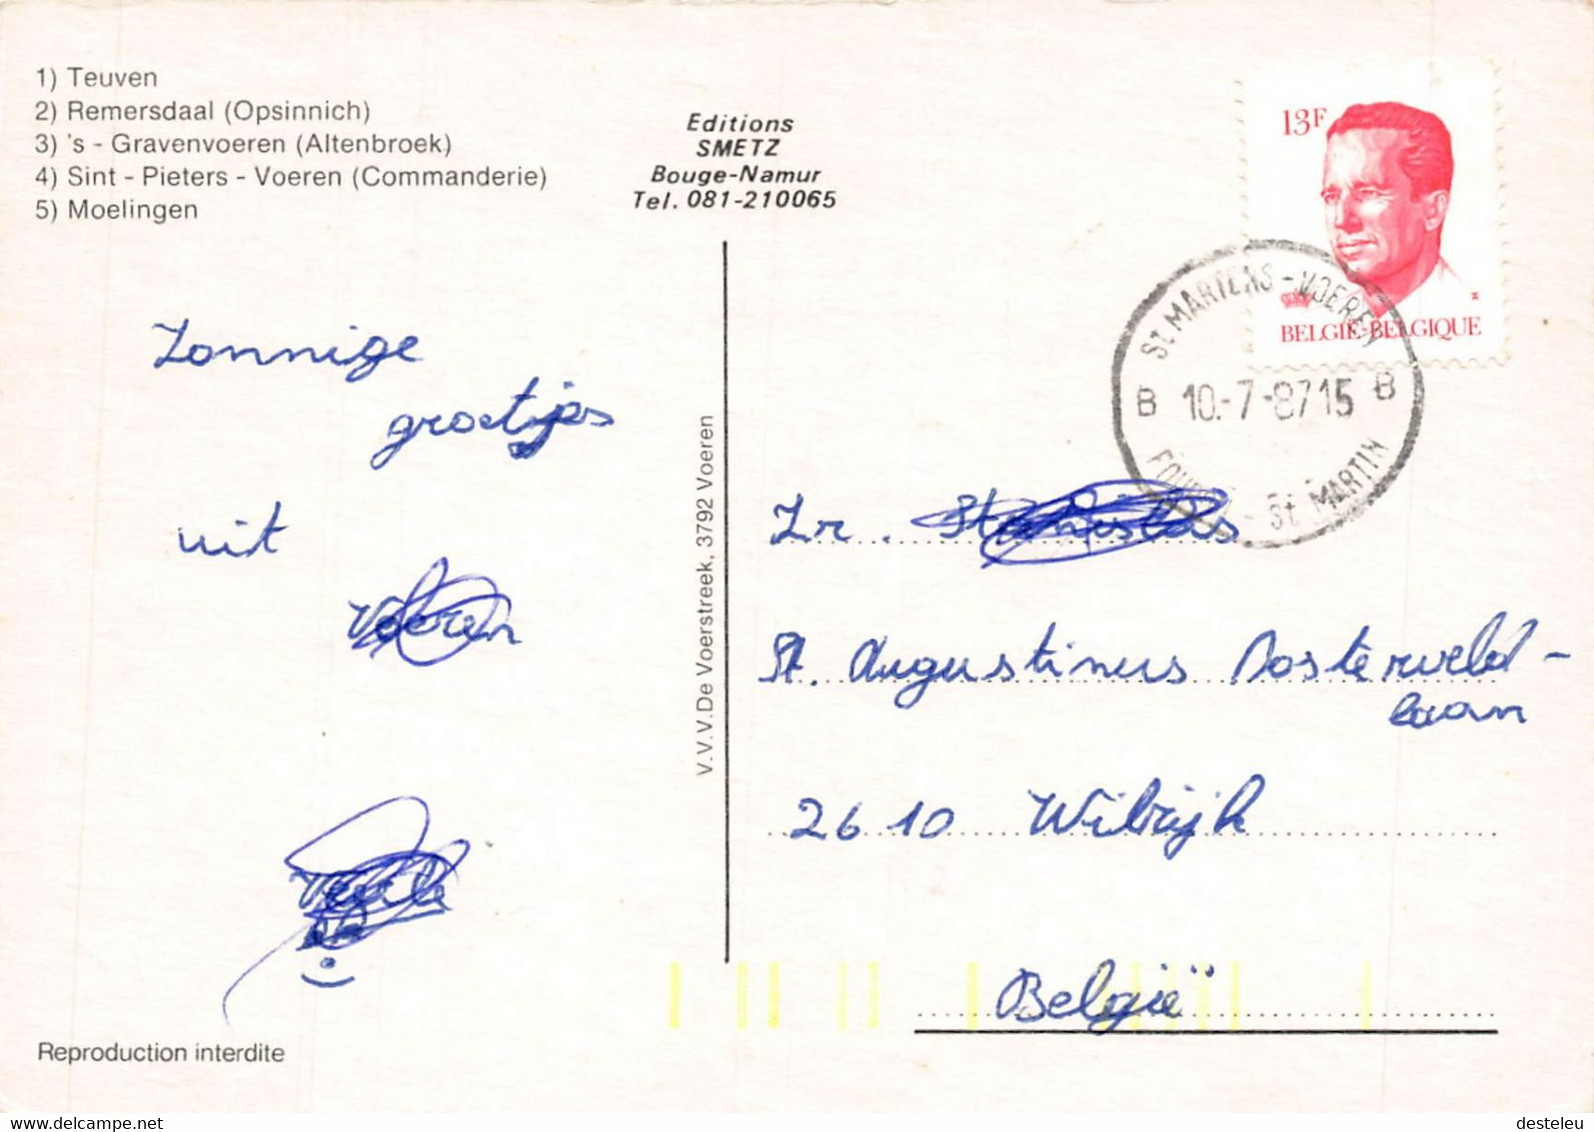 1) Teuven
2) Remersdaal (Opsinnich)
3) 's - Gravenvoeren (Altenbroek)
4) Sint - Pieters - Voeren (Commanderie)
5) Moelingen
Editions
SMETZ
Bouge-Namur
Tel. 081-210065
13F
BELGIË-BELGIQUE
St. MARTENS - VOEREN
B 10.-7-87 15 B
St MARTIN
Zonnige
groetjes
uit
Voeren
V.V.V. De Voerstreek, 3792 Voeren
Zr.
St. Augustinus Oosterveld-
laan
2610 Wilrijk
België
Reproduction interdite
delcampe.net
desteleu